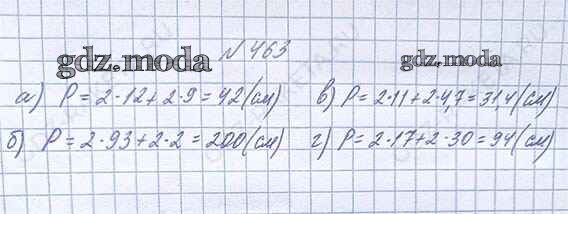 № 463
gdz.moda
gdz.moda
а) P = 2·12 + 2·9 = 42 (см) в) P = 2·11 + 2·4,7 = 31,4 (см)
б) P = 2·93 + 2·2 = 200 (см) г) P = 2·17 + 2·30 = 94 (см)